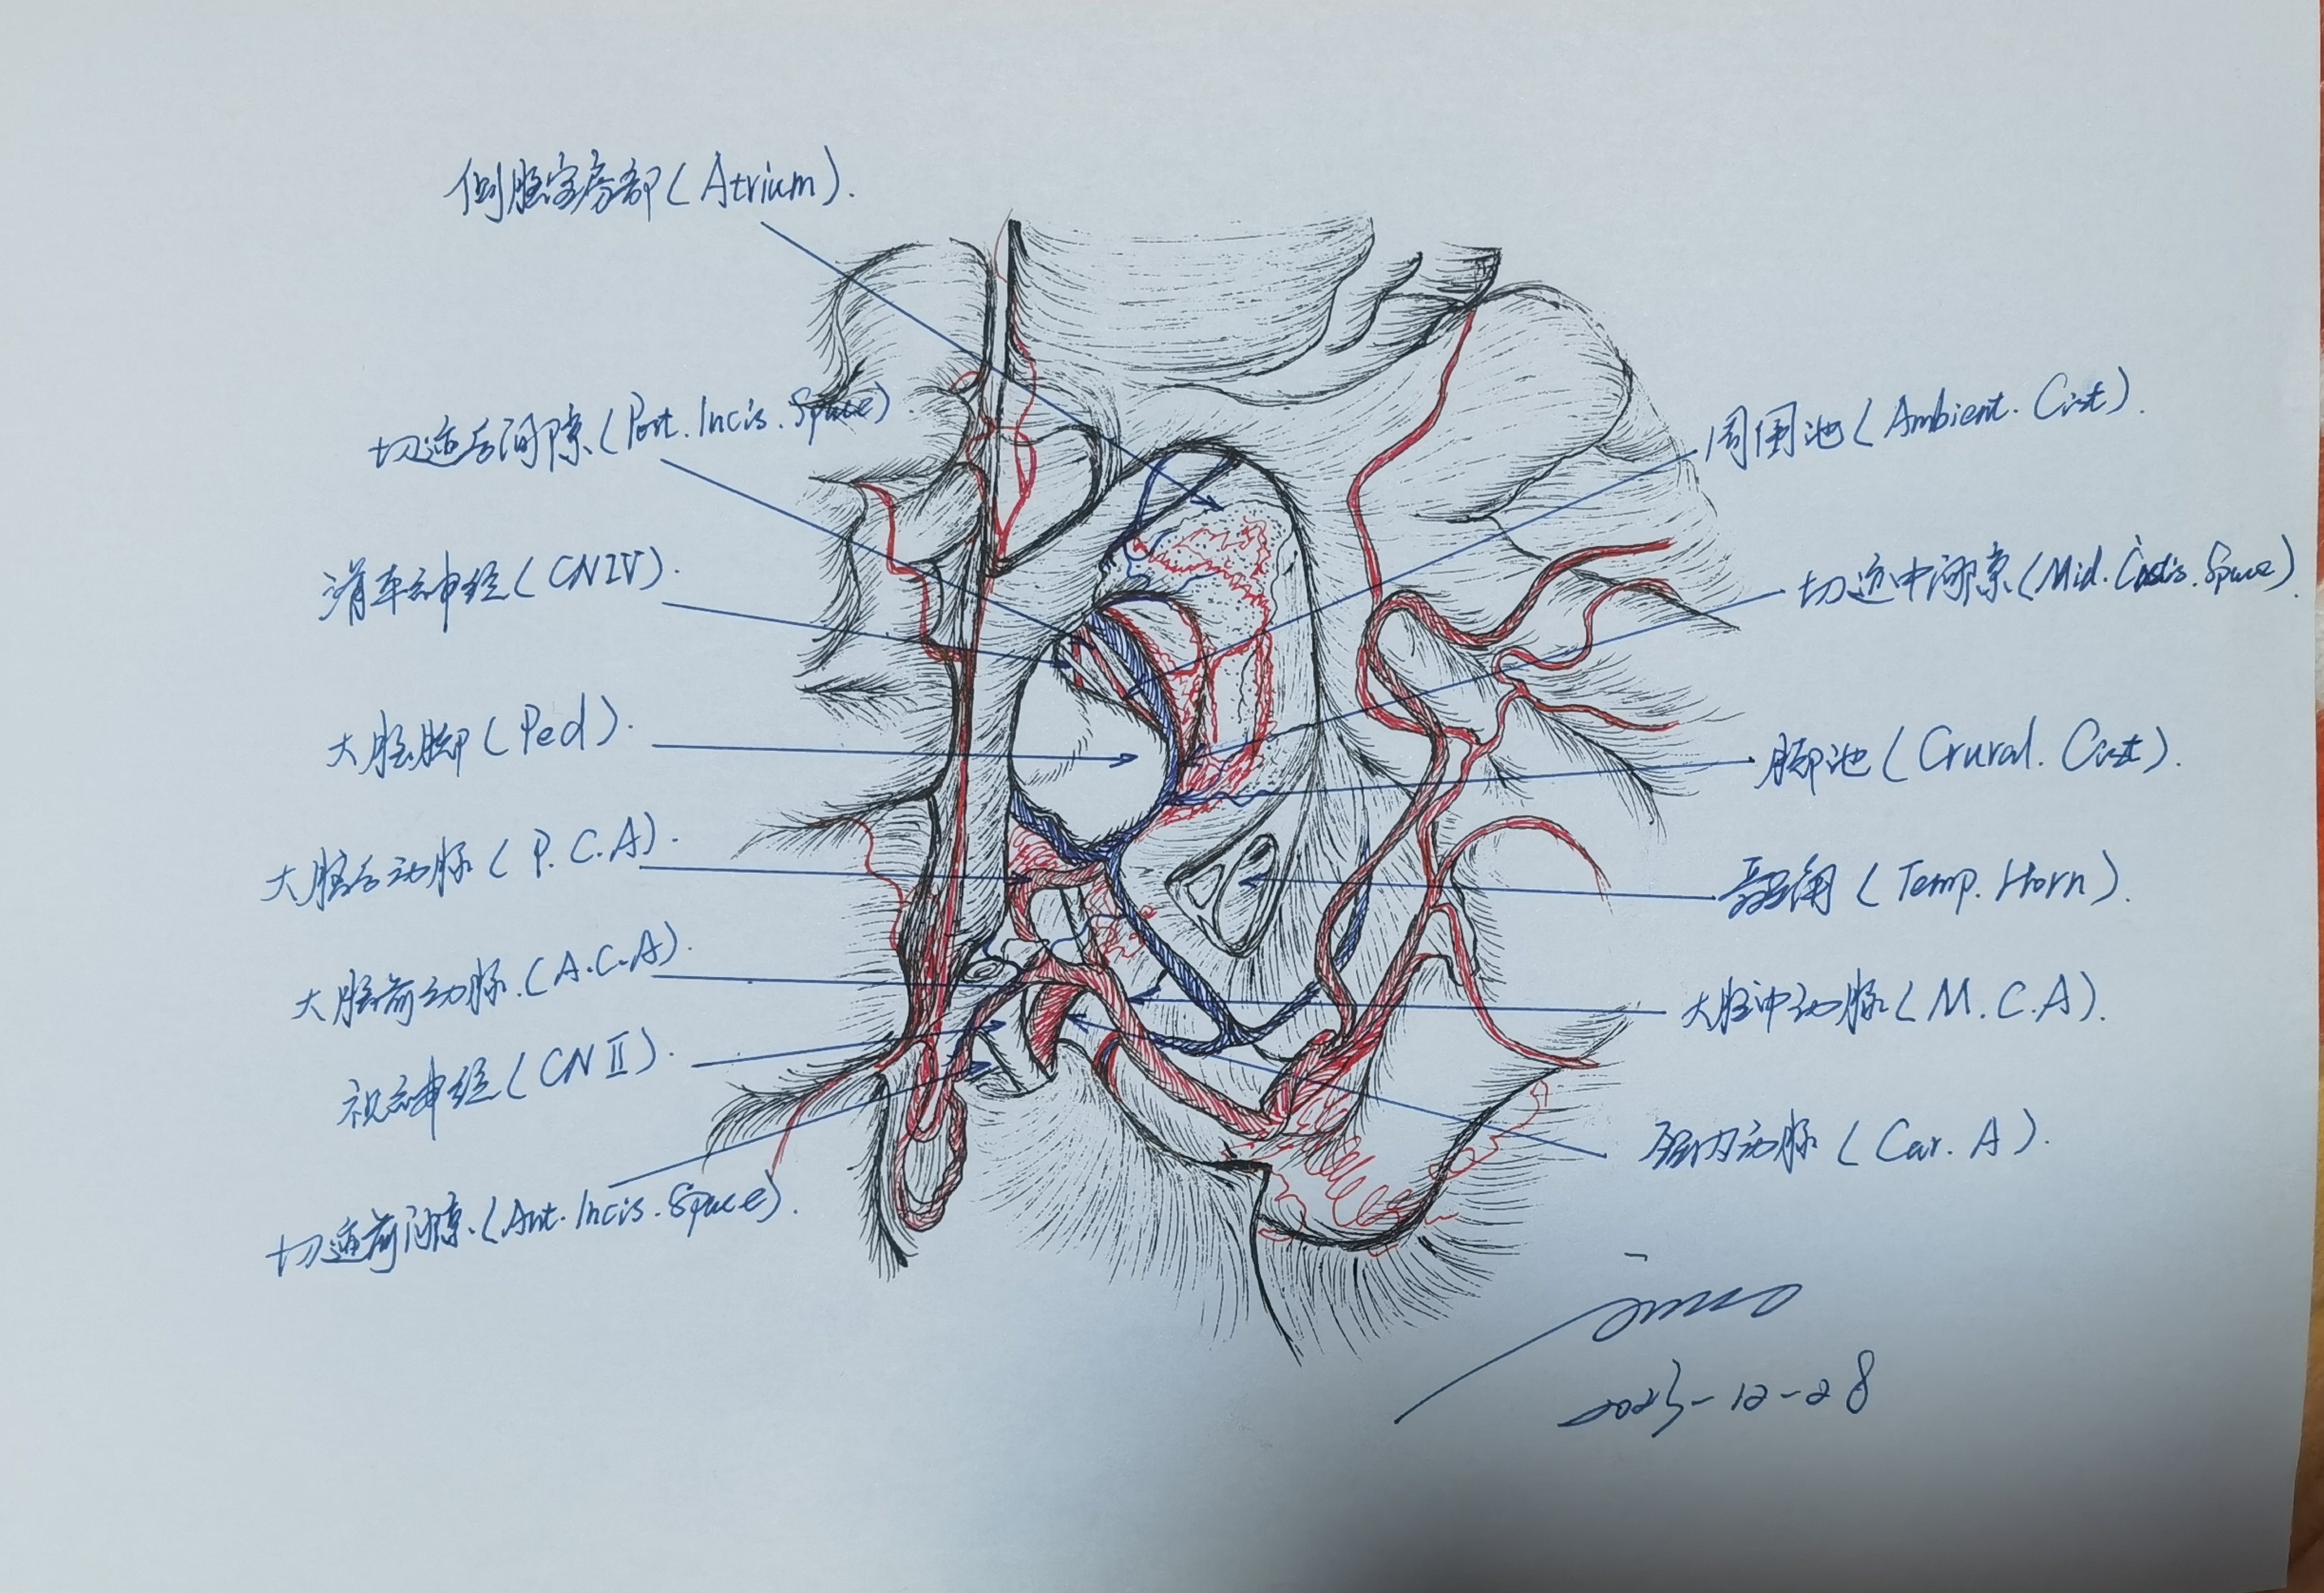 侧脑室房部(Atrium).
切迹后间隙(Post.Incis.Space)
滑车神经(CNIV).
大脑脚(Ped).
大脑后动脉(P.C.A).
大脑前动脉.(A.C.A).
视神经(CNII).
切迹前间隙.(Ant.Incis.Space).
周围池(Ambient.Cist).
切迹中间隙(Mid.Incis.Space).
脚池(Crural.Cist).
颞角(Temp.Horn).
大脑中动脉(M.C.A).
颈内动脉(Car.A).
2023-12-28